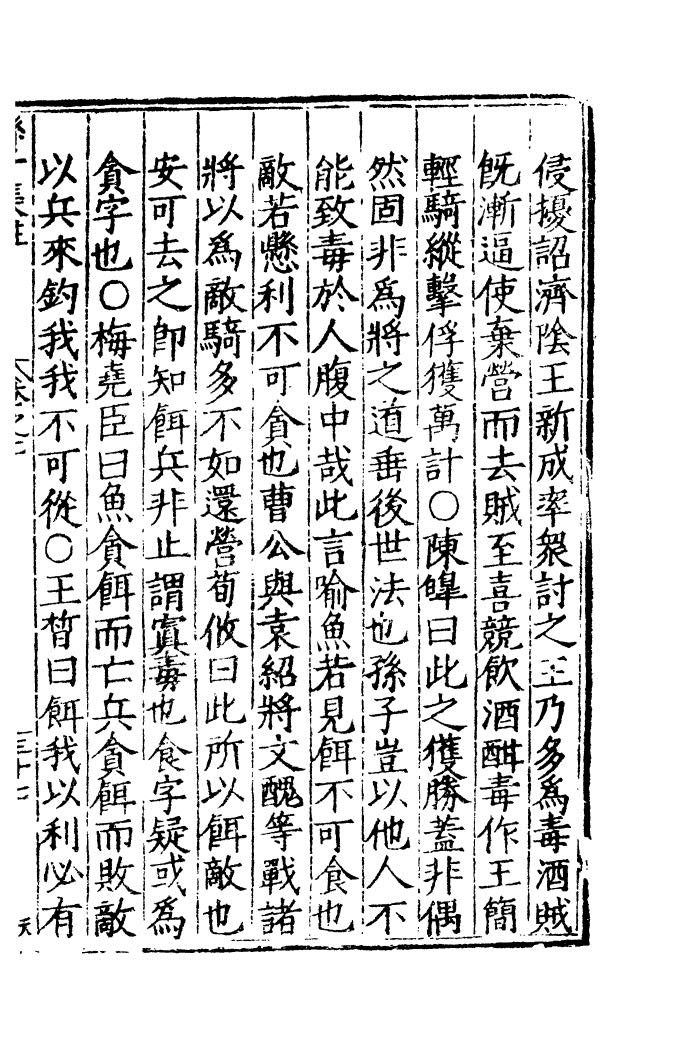 侵擾詔濟陰王新成率衆討之王乃多爲毒酒賊
旣漸逼使棄營而去賊至喜競飲酒酣毒作王簡
輕騎縱擊俘獲萬計〇陳皥曰此之獲勝蓋非偶
然固非爲將之道垂後世法也孫子豈以他人不
能致毒於人腹中哉此言喻魚若見餌不可食也
敵若懸利不可貪也曹公與袁紹將文醜等戰諸
將以爲敵騎多不如還營荀攸曰此所以餌敵也
安可去之卽知餌兵非止謂寘毒也食字疑或爲
貪字也〇梅堯臣曰魚貪餌而亡兵貪餌而敗敵
以兵來釣我我不可從〇王晳曰餌我以利必有